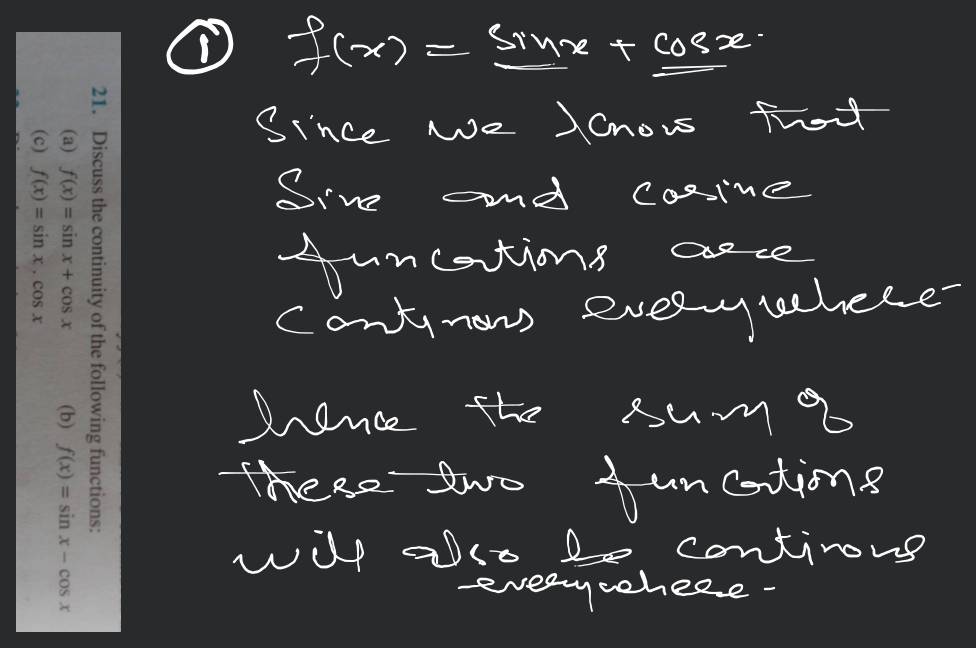 ① f(x) = sinx + cosx.
Since we know that
Sine and cosine
functions are
continous everywhere
hence the sum of
these two functions
will also be continous
everywhere.
21. Discuss the continuity of the following functions:
(a) f(x) = sin x + cos x (b) f(x) = sin x − cos x
(c) f(x) = sin x . cos x